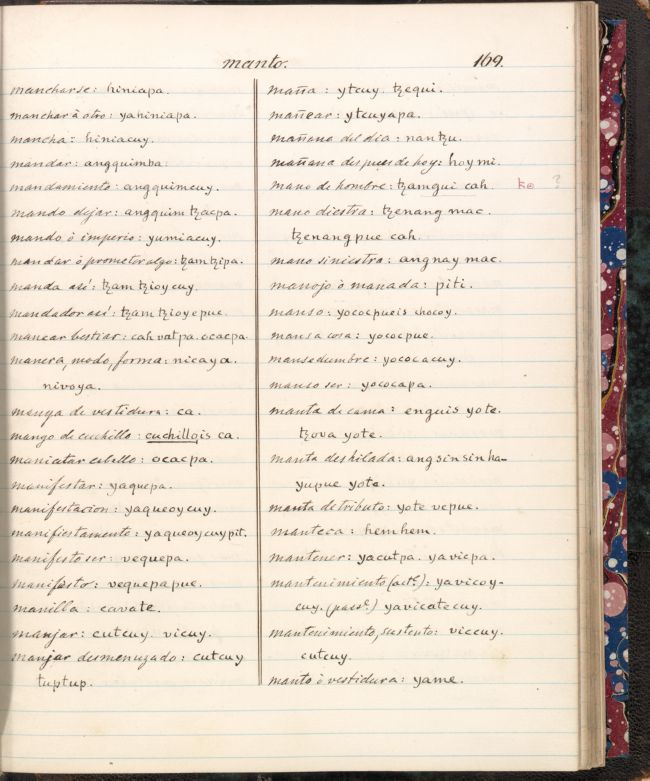 manto.
169.
mancharse: hiniapa.
manchar à otro: yahiniapa.
mancha: hiniacuy.
mandar: angquimba.
mandamiento: angquimcuy.
mando dejar: angquim tzacpa.
mando ò imperio: yumiacuy.
mandar ò prometer algo: tzam tzipa.
manda así: tzam tzioycuy.
mandador así: tzam tzioyepue.
manear bestiar: cah vatpa. ocacpa.
manera, modo, forma: nicaya.
nivoya.
manga de vestidura: ca.
mango de cuchillo: cuchillois ca.
maniatar cabello: ocacpa.
manifestar: yaquepa.
manifestacion: yaqueoycuy.
manifiestamente: yaqueoycuypit.
manifiesto ser: vequepa.
manifiesto: vequepapue.
manilla: cavate.
manjar: cutcuy. vicuy.
manjar desmenuzado: cutcuy
tuptup.
maña: ytcuy. tzequi.
mañear: ytcuyapa.
mañana del dia: nantzu.
mañana despues de hoy: hoymi.
mano de hombre: tzamgui cah. ?
mano diestra: tzenang mac.
tzenangpue cah.
mano siniestra: angnay mac.
manojo ò manada: piti.
manso: yococpueis chocoy.
mansa cosa: yococpue.
mansedumbre: yococacuy.
manso ser: yococapa.
manta de cama: enguis yote.
tzova yote.
manta deshilada: angsinsinha-
yupue yote.
manta de tributo: yote vepue.
manteca: hemhem.
mantener: yacutpa. yavicpa.
mantenimiento (act.): yavicoy-
cuy. (pass.) yavicatecuy.
mantenimiento, sustento: viccuy.
cutcuy.
manto ò vestidura: yame.